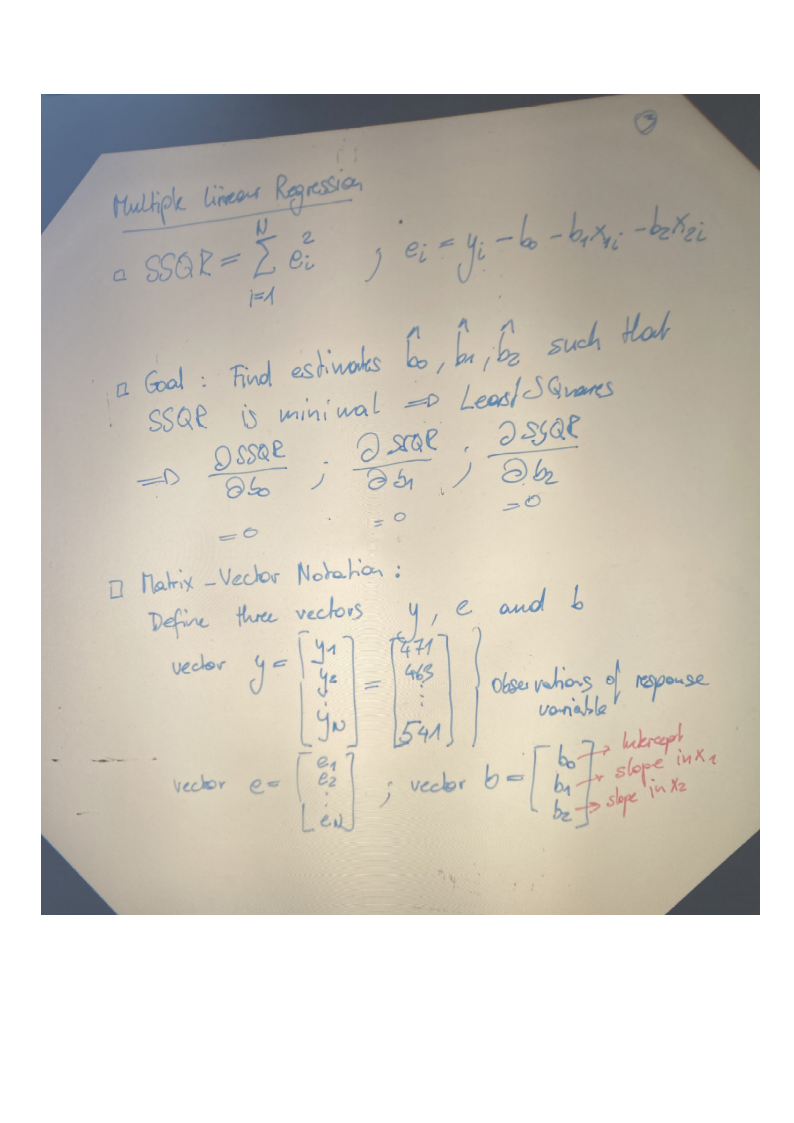 ③
Multiple Linear Regression
□ SSQR = ∑ᵢ₌₁ᴺ eᵢ² ; eᵢ = yᵢ - b₀ - b₁x₁ᵢ - b₂x₂ᵢ
□ Goal : Find estimates b̂₀, b̂₁, b̂₂ such that
SSQR is minimal ⇒ Least SQuares
⇒ ∂SSQR/∂b₀ = 0 ; ∂SSQR/∂b₁ = 0 ; ∂SSQR/∂b₂ = 0
□ Matrix-Vector Notation :
Define three vectors y, e and b
vector y = [y₁ y₂ ⋮ yN] = [471 463 ⋮ 541] } Observations of response
variable
vector e = [e₁ e₂ ⋮ eN] ; vector b = [b₀ b₁ b₂]
→ Intercept
→ slope in x₁
→ slope in x₂